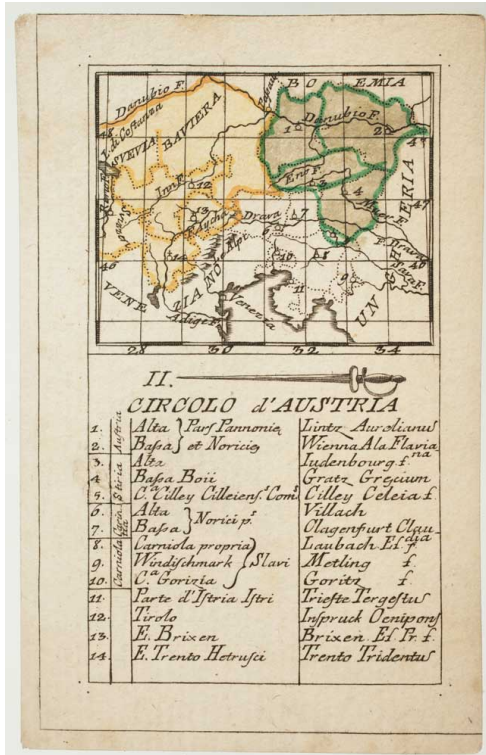 BOEMIA
Danubio F.
L. di Costanza
SVEVIA
BAVIERA
1
Danubio F.
2
48
Inn F.
12
Ens F.
3
4
Muer F.
47
13
Drava
7
F. Drava
6
5
Alpi
14
10
8
Sava F.
46
VENEZIANO
9
11
Adige F.
Venezia
UNGHERIA
28
30
32
34
II.
CIRCOLO d'AUSTRIA
Austria
1. Alta } Pars Pannoniæ Lintz Aurelianus
2. Baſsa } et Noricie Wienna Ala Flaviana
Stiria
3. Alta Iudenbourg f.
4. Baſsa Boii Gratz Græcum
5. C.a Cilley Cilleienſ.s Com. Cilley Celeia f.
Carintia
6. Alta } Norici p.s Villach
7. Baſsa } Clagenfurt Claudia
Carniola
8. Carniola propria } Laubach Eſ f.
9. Windiſchmark } Slavi Metling f.
10. C.a Gorizia } Goritz f.
11. Parte d'Iſtria Iſtri Trieſte Tergeſtuſ
12. Tirolo Inſpruck Oenipons
13. E. Brixen Brixen Eſ. Pr. f.
14. E. Trento Hetruſci Trento Tridentuſ